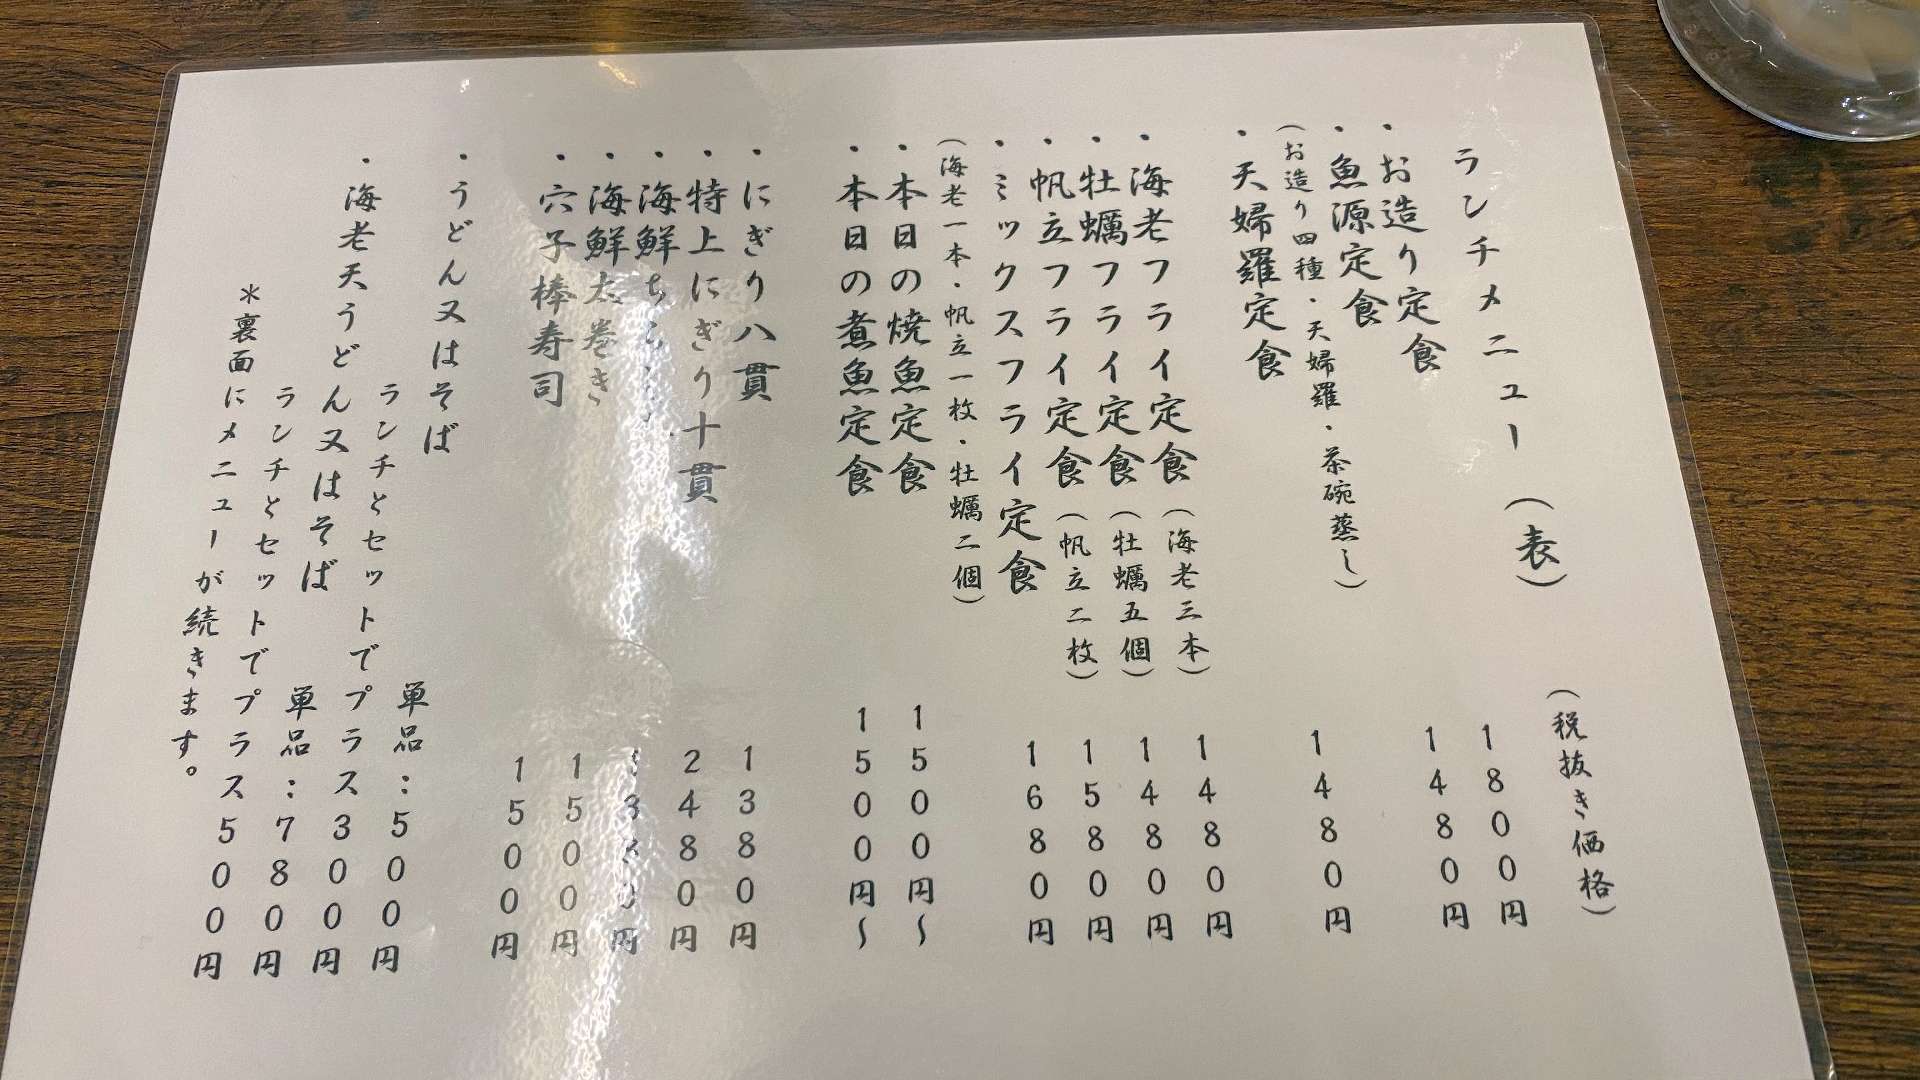 ランチメニュー(表) (税抜き価格)
・お造り定食 1800円
・魚源定食 1480円
(お造り四種・天婦羅・茶碗蒸し)
・天婦羅定食 1480円
・海老フライ定食(海老三本) 1480円
・牡蠣フライ定食(牡蠣五個) 1480円
・帆立フライ定食(帆立二枚) 1580円
・ミックスフライ定食 1680円
(海老一本・帆立一枚・牡蠣二個)
・本日の焼魚定食 1500円〜
・本日の煮魚定食 1500円〜
・にぎり八貫 1380円
・特上にぎり十貫 2480円
・海鮮ちらし
・海鮮太巻き 1500円
・穴子棒寿司 1500円
・うどん又はそば 単品:500円
ランチとセットでプラス300円
・海老天うどん又はそば 単品:780円
ランチとセットでプラス500円
*裏面にメニューが続きます。